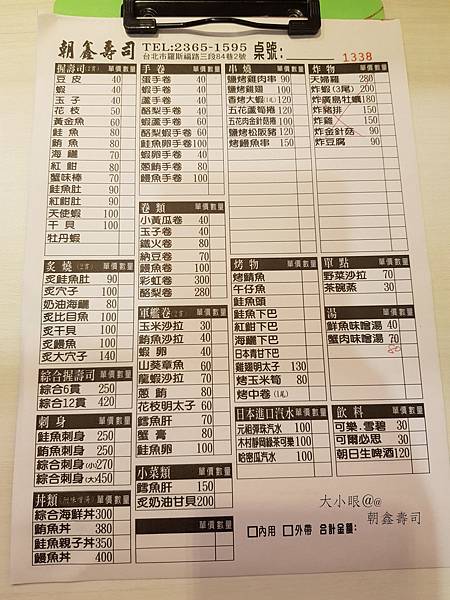 朝鑫壽司
TEL:2365-1595 桌號:
台北市羅斯福路三段84巷2號
1338
握壽司(2貫) 單價 數量
豆皮 40
蝦 40
玉子 40
花枝 50
黃金魚 60
鮭魚 80
鮪魚 80
海鱺 70
紅魽 80
蟹味棒 70
鮭魚肚 90
紅魽肚 90
天使蝦 100
干貝 100
牡丹蝦
炙燒(2貫) 單價 數量
炙鮭魚肚 90
炙穴子 100
奶油海鱺 80
炙比目魚 100
炙干貝 100
炙鰻魚 100
炙大穴子 140
綜合握壽司 單價 數量
綜合6貫 250
綜合12貫 420
刺身 單價 數量
鮭魚刺身 250
鮪魚刺身 250
綜合刺身(小) 270
綜合刺身(大) 450
丼類(附味噌湯) 單價 數量
綜合海鮮丼 300
鮪魚丼 380
鮭魚親子丼 350
鰻魚丼 400
手卷 單價 數量
蛋手卷 40
蝦手卷 40
蘆手卷 40
酪梨手卷 60
酪梨蝦手卷 60
鮭魚卵手卷 100
蝦卵手卷 60
蔥鮪手卷 80
鰻魚手卷 100
卷類 單價 數量
小黃瓜卷 40
玉子卷 40
鐵火卷 80
納豆卷 70
鰻魚卷 100
彩虹卷 300
酪梨卷 280
軍艦卷(2貫) 單價 數量
玉米沙拉 30
鮪魚沙拉 40
蝦卵 40
山葵章魚 60
龍蝦沙拉 70
蔥鮪 80
花枝明太子 60
鱈魚肝 70
蟹膏 80
鮭魚卵 100
小菜類 單價 數量
鱈魚肝 150
炙奶油甘貝 200
串燒 單價 數量
鹽烤雞肉串 90
鹽烤雞翅 100
香烤大蝦(1尾) 120
五花蘆筍捲 120
五花肉金針菇捲 100
鹽烤松阪豬 120
烤鰻魚串 150
烤物 單價 數量
烤鯖魚
午仔魚
鮭魚頭
鮭魚下巴
紅魽下巴
海鱺下巴
日本青甘下巴
雞翅明太子 130
烤玉米筍 80
烤中卷(1尾)
日本進口汽水 單價 數量
元祖彈珠汽水 100
木村靜岡綠茶可樂 100
哈密瓜汽水 100
炸物 單價 數量
天婦羅 280
炸蝦(3尾) 200
炸廣島牡蠣 180
炸豬排 150
炸雞 150
炸金針菇 90
炸豆腐 90
單點 單價 數量
野菜沙拉 70
茶碗蒸 30
湯 單價 數量
鮮魚味噌湯 70
蟹肉味噌湯 70
80
飲料 單價 數量
可樂.雪碧 30
可爾必思 30
朝日生啤酒 120
大小眼@@
朝鑫壽司
□內用 □外帶 合計金額: